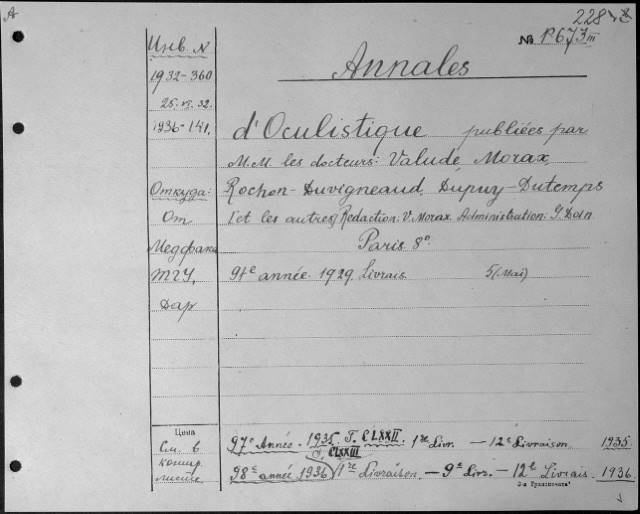 А
228
№ P673III
Инв N
Annales
1932-360
25.VI.32.
1936-141.
d'Oculistique publiées par
M.M. les docteurs: Valude, Morax,
Откуда:
Rochon-Duvigneaud, Dupuy-Dutemps
От
[et les autres] Rédaction: V. Morax. Administration: G. Doin
Медфака
Paris 8°.
ТГУ,
91e année. 1929. Livrais. 5 (Май)
Дар
Цена
См. в
97e Année. 1935. T. CLXXII. 1re Livr. — 12e Livraison. 1935.
T. CLXXIII
контр.
листе
98e année 1936 1re Livraison. — 9e Livr. — 12e Livrais. 1936.